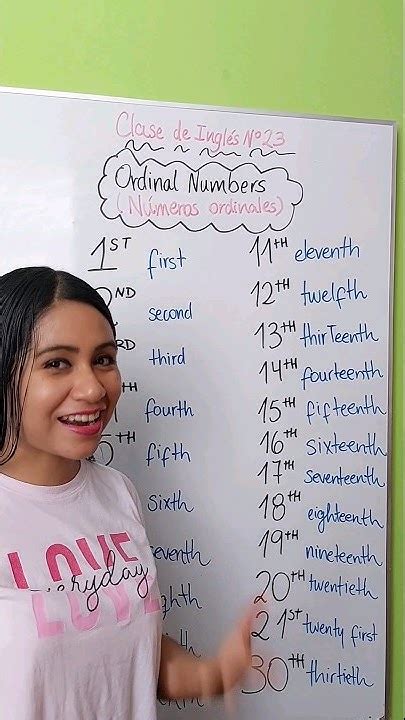 Clase de Inglés Nº23
Ordinal Numbers
(Números ordinales)
1ST first
ND second
RD third
TH fourth
5TH fifth
sixth
eventh
ghth
th
11TH eleventh
12TH twelfth
13TH thirTeenth
14TH fourteenth
15TH fifteenth
16TH sixteenth
17TH seventeenth
18TH eighteenth
19TH nineteenth
20TH twentieth
21ST twenty first
30TH thirtieth
LOVE
LOVE